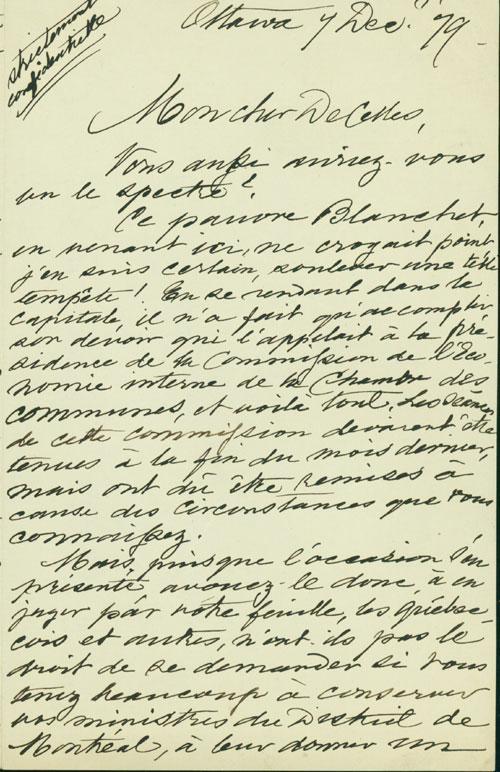 strictement
confidentielle
Ottawa 7 Dec. 79
Mon cher DeCelles,
Vous aussi auriez-vous
vu le spectre?
Ce pauvre Blanchet,
en venant ici, ne croyait point
j'en suis certain, soulever une telle
tempête! En se rendant dans la
capitale, il n'a fait qu'accomplir
son devoir qui l'appelait à la pré-
sidence de la Commission de l'Eco-
nomie interne de la Chambre des
communes, et voilà tout. Les séances
de cette commission devaient être
tenues à la fin du mois dernier,
mais ont dû être remises à
cause des circonstances que vous
connaissez.
Mais, puisque l'occasion s'en
présente avouez-le donc, à en
juger par votre feuille, les Québec-
cois et autres, n'ont-ils pas le
droit de se demander si vous
tenez beaucoup à conserver
vos ministres du District de
Montréal, à leur donner un